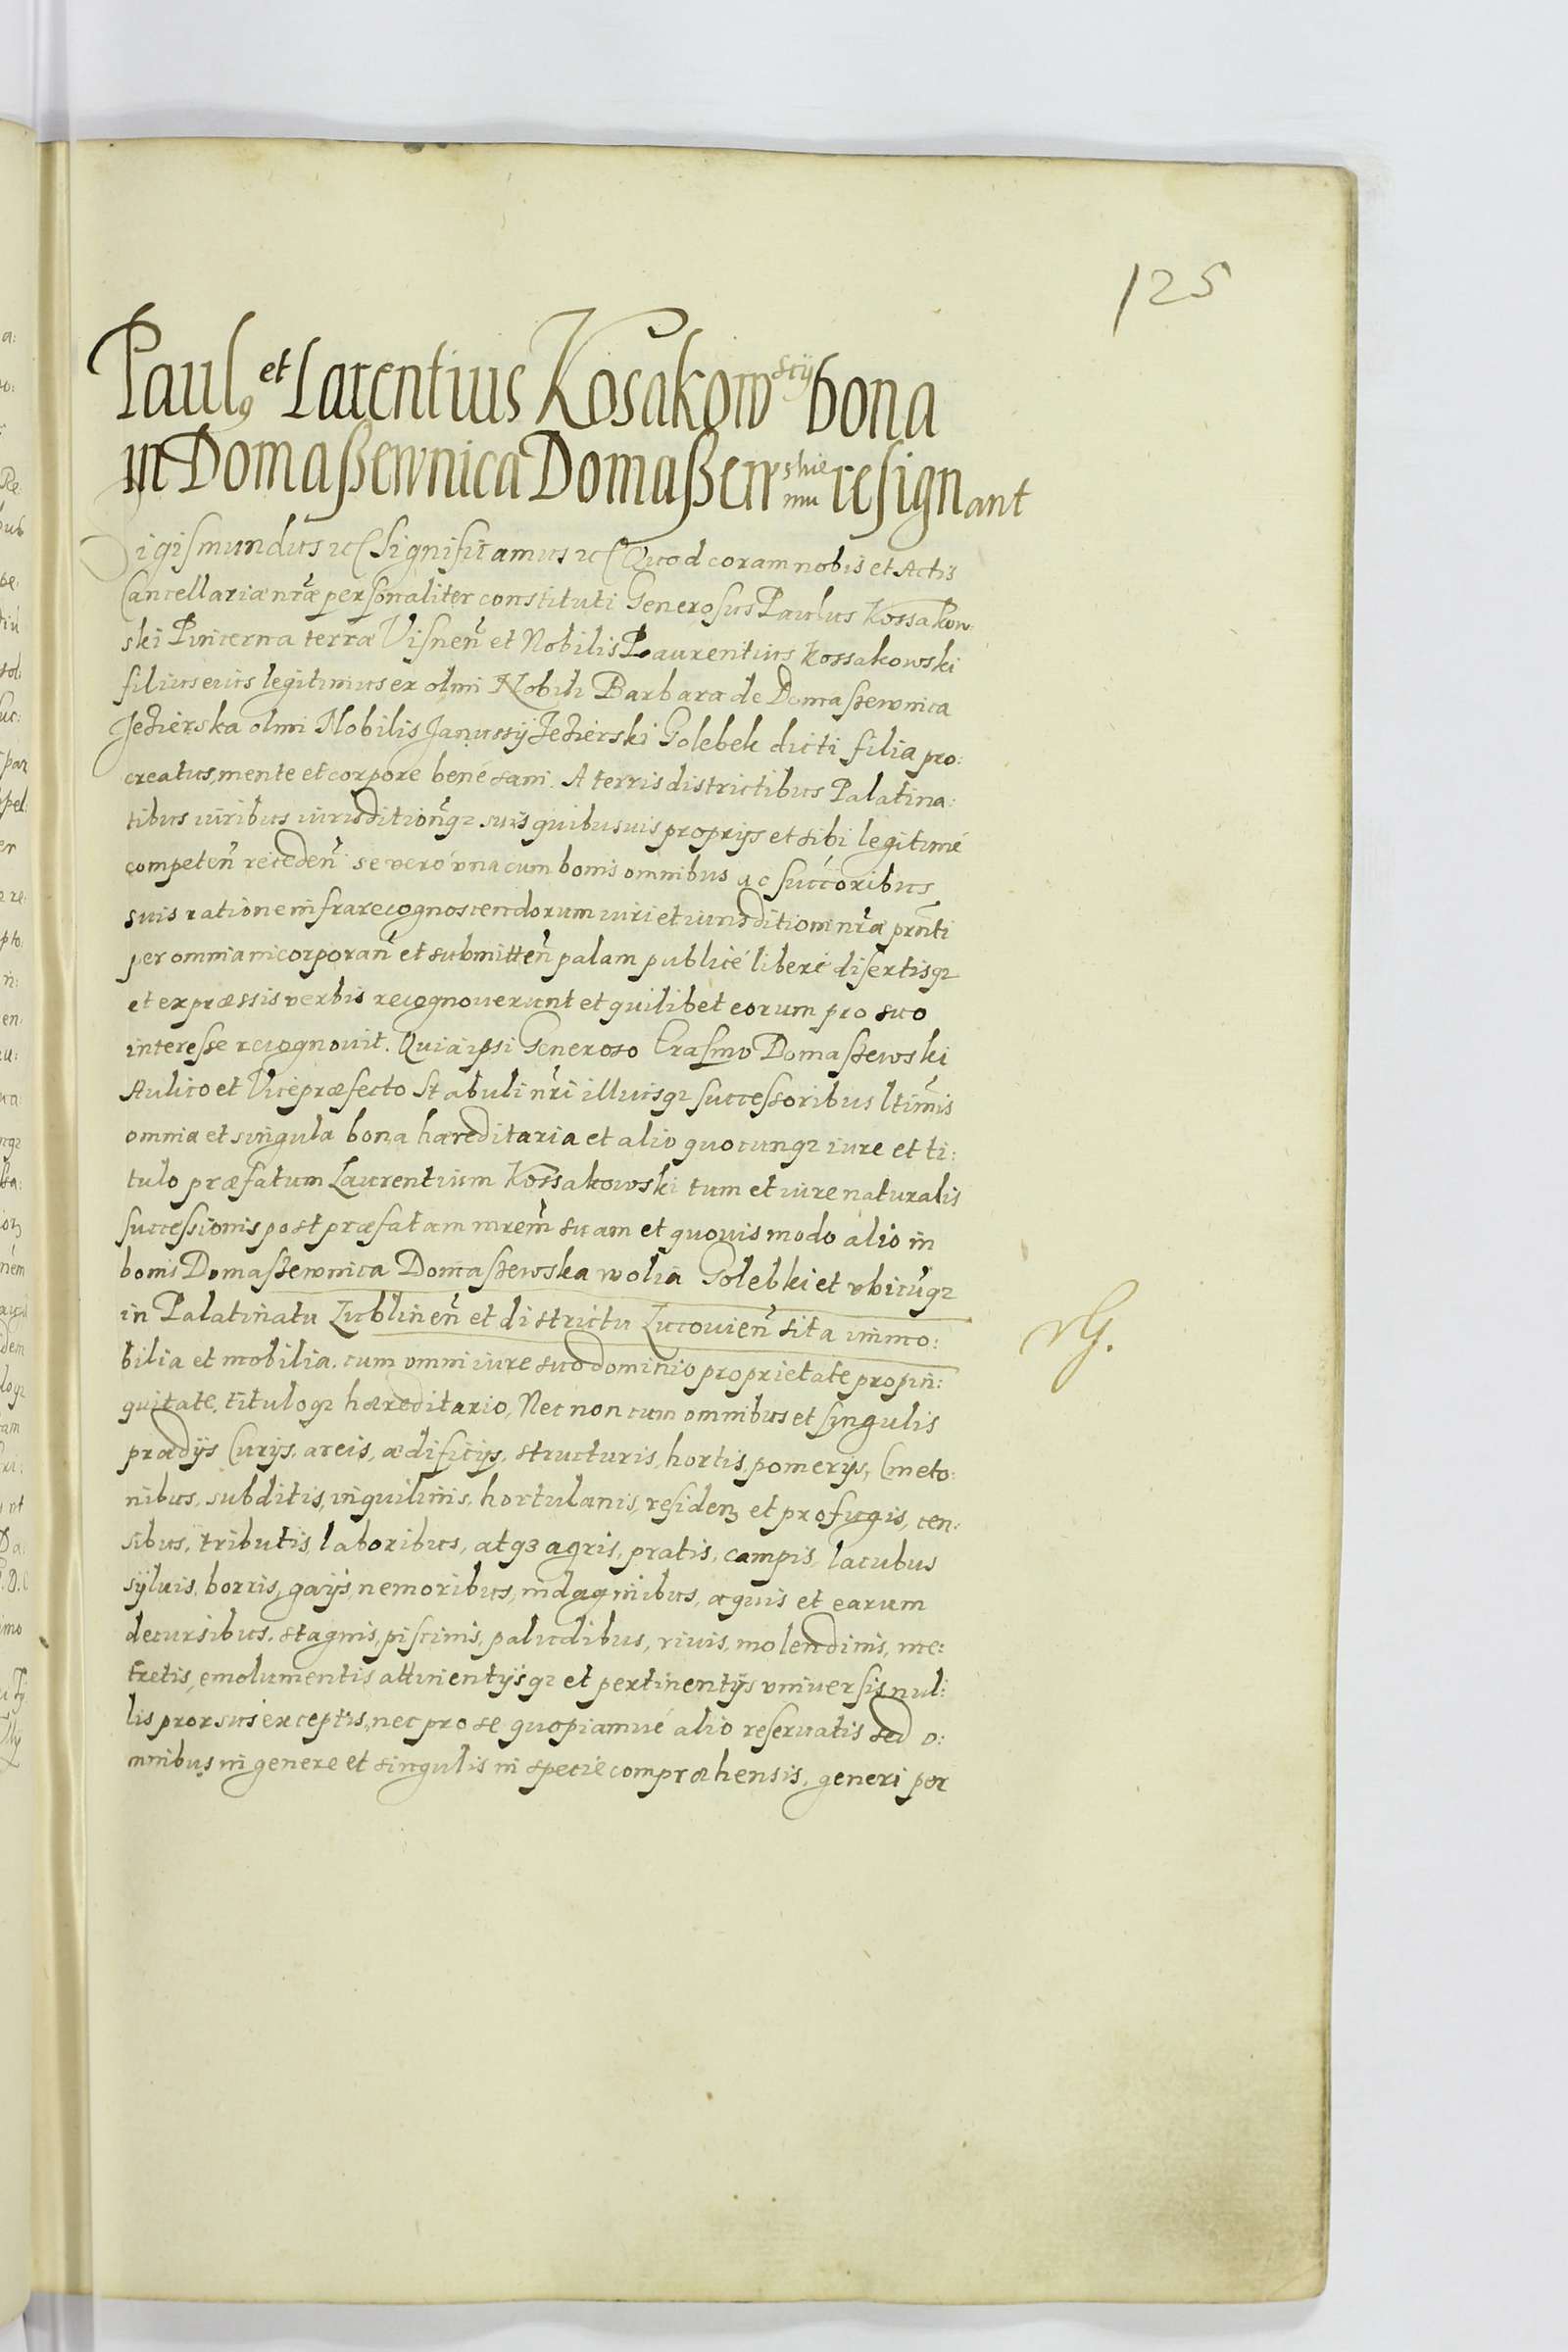 125
Paulꝰ et Larentius Kosakowscij bona
in Domaßewnica Domaßewskiemu resignant
Sigismundus ꝛc Significamus ꝛc Quod coram nobis et Actis
Cancellariæ nrãe personaliter constituti Generosus Paulus Kossakow
ski Pincerna terræ Visneñ et Nobilis Laurentius Kossakowski
filius eius legitimus ex olim Nobili Barbara de Domaszewnica
Jezierska olim Nobilis Janussÿ Jezierski Golebek dicti filia pro:
creatus, mente et corpore bené sani. A terris districtibus Palatina:
tibus iuribus iurisditionẽqꝫ suis quibusuis proprijs et sibi legitimé
competeñ recedeñ se veró vna cum bonis omnibus ac succõribus
suis ratione infrarecognoscendorum iuri et iurisditioni nrãe prñti
per omnia incorporañ et submitteñ palam publicé liberé disertisqꝫ
et expræssis verbis recognouerunt et quilibet eorum pro suo
interesse recognouit. Quia ipsi Generoso Erasmo Domaszewski
Aulico et Vicepræfecto Stabuli nrĩ illiusqꝫ successoribus ltimis
omnia et singula bona hæreditaria et alio quocunqꝫ iure et ti:
tulo præfatum Laurentium Kossakowski tum et iure naturalis
successionis post præfatam mrem̃ suam et quouis modo alio in
bonis Domaszewnica Domaszewska wolia Golebki et vbicũqꝫ
in Palatinatu Lublineñ et districtu Lucouieñ sita immo:
vG.
bilia et mobilia. cum omni iure suo dominio proprietate propin:
quitate, tituloqꝫ hæreditario, Nec non cum omnibus et singulis
prædijs Curijs, areis, ædificijs, structuris, hortis, pomerijs, Cmeto:
nibus, subditis, inquilinis, hortulanis, residenꝫ et profugis, cen:
sibus, tributis, laboribus, atqꝫ agris, pratis, campis, lacubus
sÿluis, borris, gaÿs, nemoribus, indaginibus, aquis et earum
decursibus. stagnis, piscinis, paludibus, riuis, molendinis, me:
tretis, emolumentis attinentijsqꝫ et pertinentijs vniuersis nul:
lis prorsus exceptis, nec pro se quopiamué alio reseruatis sed o:
mnibus in genere et singulis in specie compræhensis, generi per